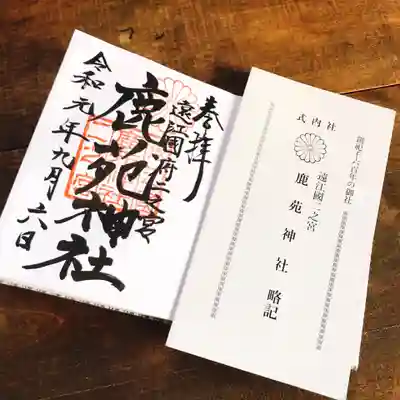 奉拝
遠江國府二之宮
鹿苑神社
令和元年九月六日
創祀千六百年の御社
式内社
遠江國二之宮
鹿苑神社略記